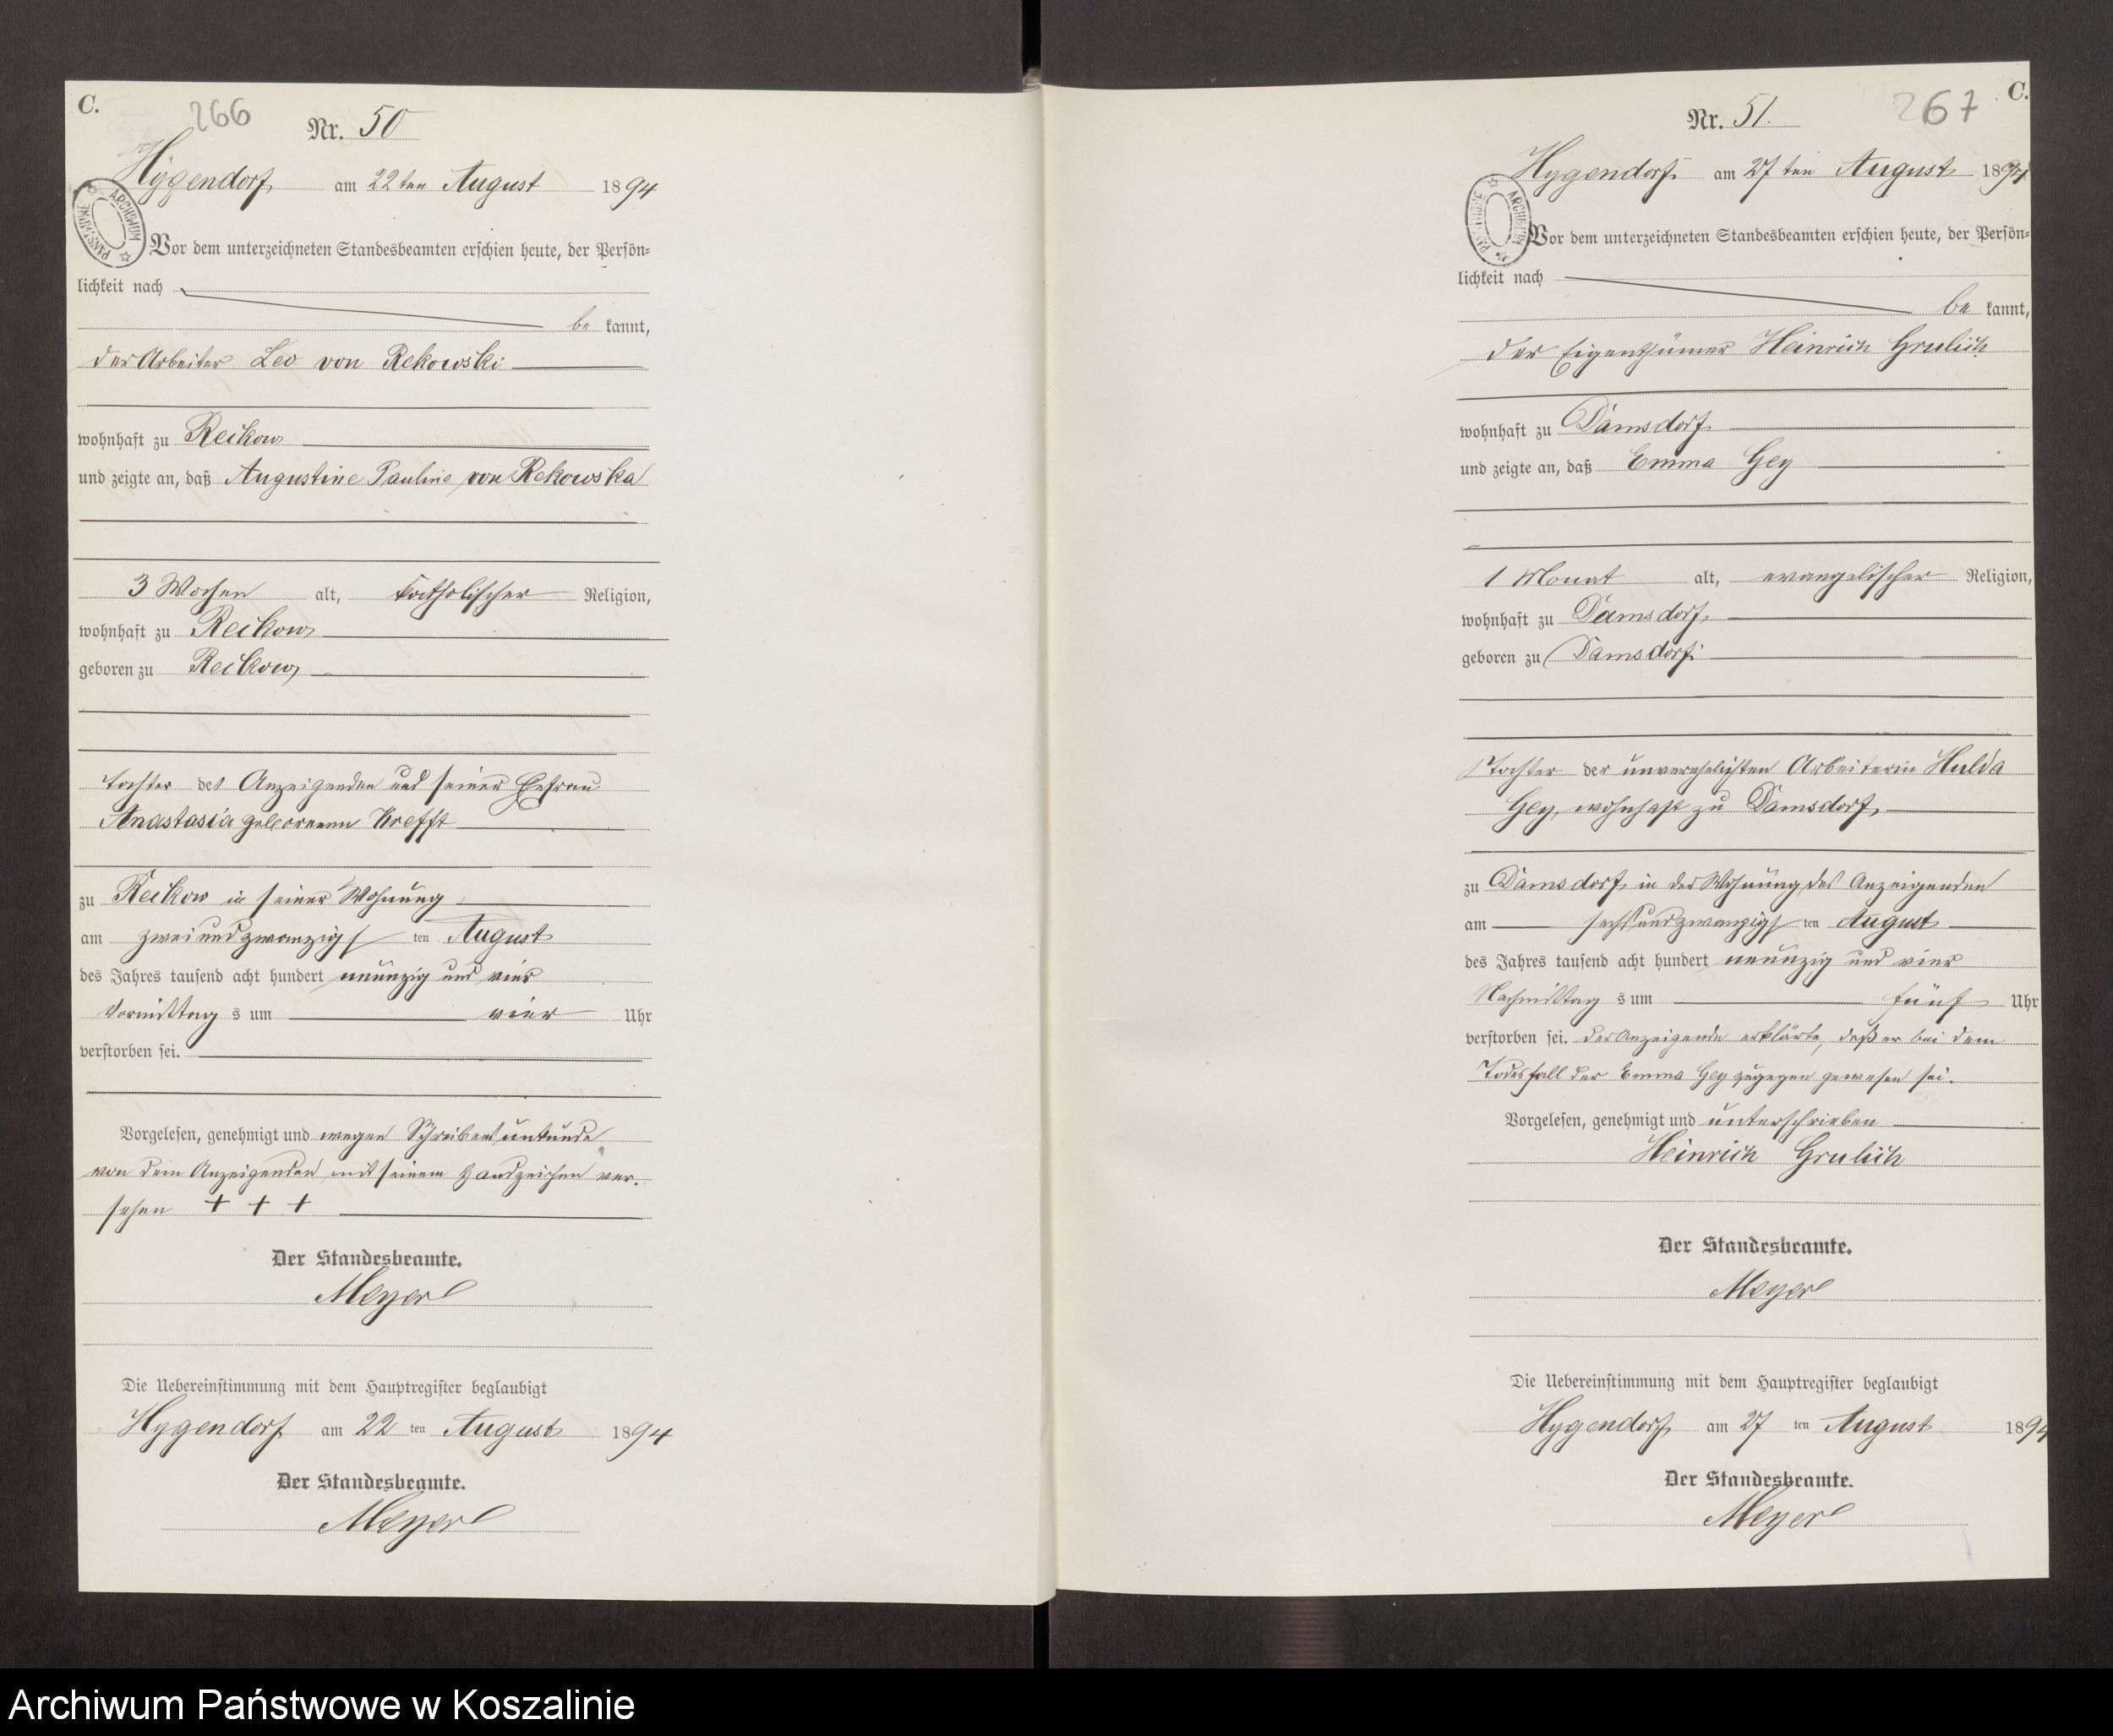 C.
266
Nr. 50
Hygendorf am 22 ten August 1894
ARCHIWUM PAŃSTWOWE
Vor dem unterzeichneten Standesbeamten erschien heute, der Persön-
lichkeit nach
be kannt,
der Arbeiter Leo von Rekowski
wohnhaft zu Reckow
und zeigte an, daß Augustine Pauline von Rekowska
3 Wochen alt, katholischer Religion,
wohnhaft zu Reckow
geboren zu Reckow
Tochter des Anzeigenden und seiner Ehefrau
Anastasia geborenen Krefft
zu Reckow in seiner Wohnung
am zweiundzwanzigs ten August
des Jahres tausend acht hundert neunzig und vier
Vormittag s um vier Uhr
verstorben sei.
Vorgelesen, genehmigt und wegen Schreibensunkunde
von dem Anzeigenden mit seinem Handzeichen ver-
sehen + + +
Der Standesbeamte.
Meyer
Die Uebereinstimmung mit dem Hauptregister beglaubigt
Hygendorf am 22 ten August 1894
Der Standesbeamte.
Meyer
C.
267
Nr. 51.
Hygendorf am 27 ten August 1894
ARCHIWUM PAŃSTWOWE
Vor dem unterzeichneten Standesbeamten erschien heute, der Persön-
lichkeit nach
be kannt,
der Eigenthümer Heinrich Grulich
wohnhaft zu Damsdorf
und zeigte an, daß Emma Gey
1 Monat alt, evangelischer Religion,
wohnhaft zu Damsdorf
geboren zu Damsdorf
Tochter der unverehelichten Arbeiterin Hulda
Gey, wohnhaft zu Damsdorf,
zu Damsdorf in der Wohnung des Anzeigenden
am sechsundzwanzigs ten August
des Jahres tausend acht hundert neunzig und vier
Nachmittag s um fünf Uhr
verstorben sei. Der Anzeigende erklärte, daß er bei dem
Todesfall der Emma Gey zugegen gewesen sei.
Vorgelesen, genehmigt und unterschrieben
Heinrich Grulich
Der Standesbeamte.
Meyer
Die Uebereinstimmung mit dem Hauptregister beglaubigt
Hygendorf am 27 ten August 1894
Der Standesbeamte.
Meyer
Archiwum Państwowe w Koszalinie